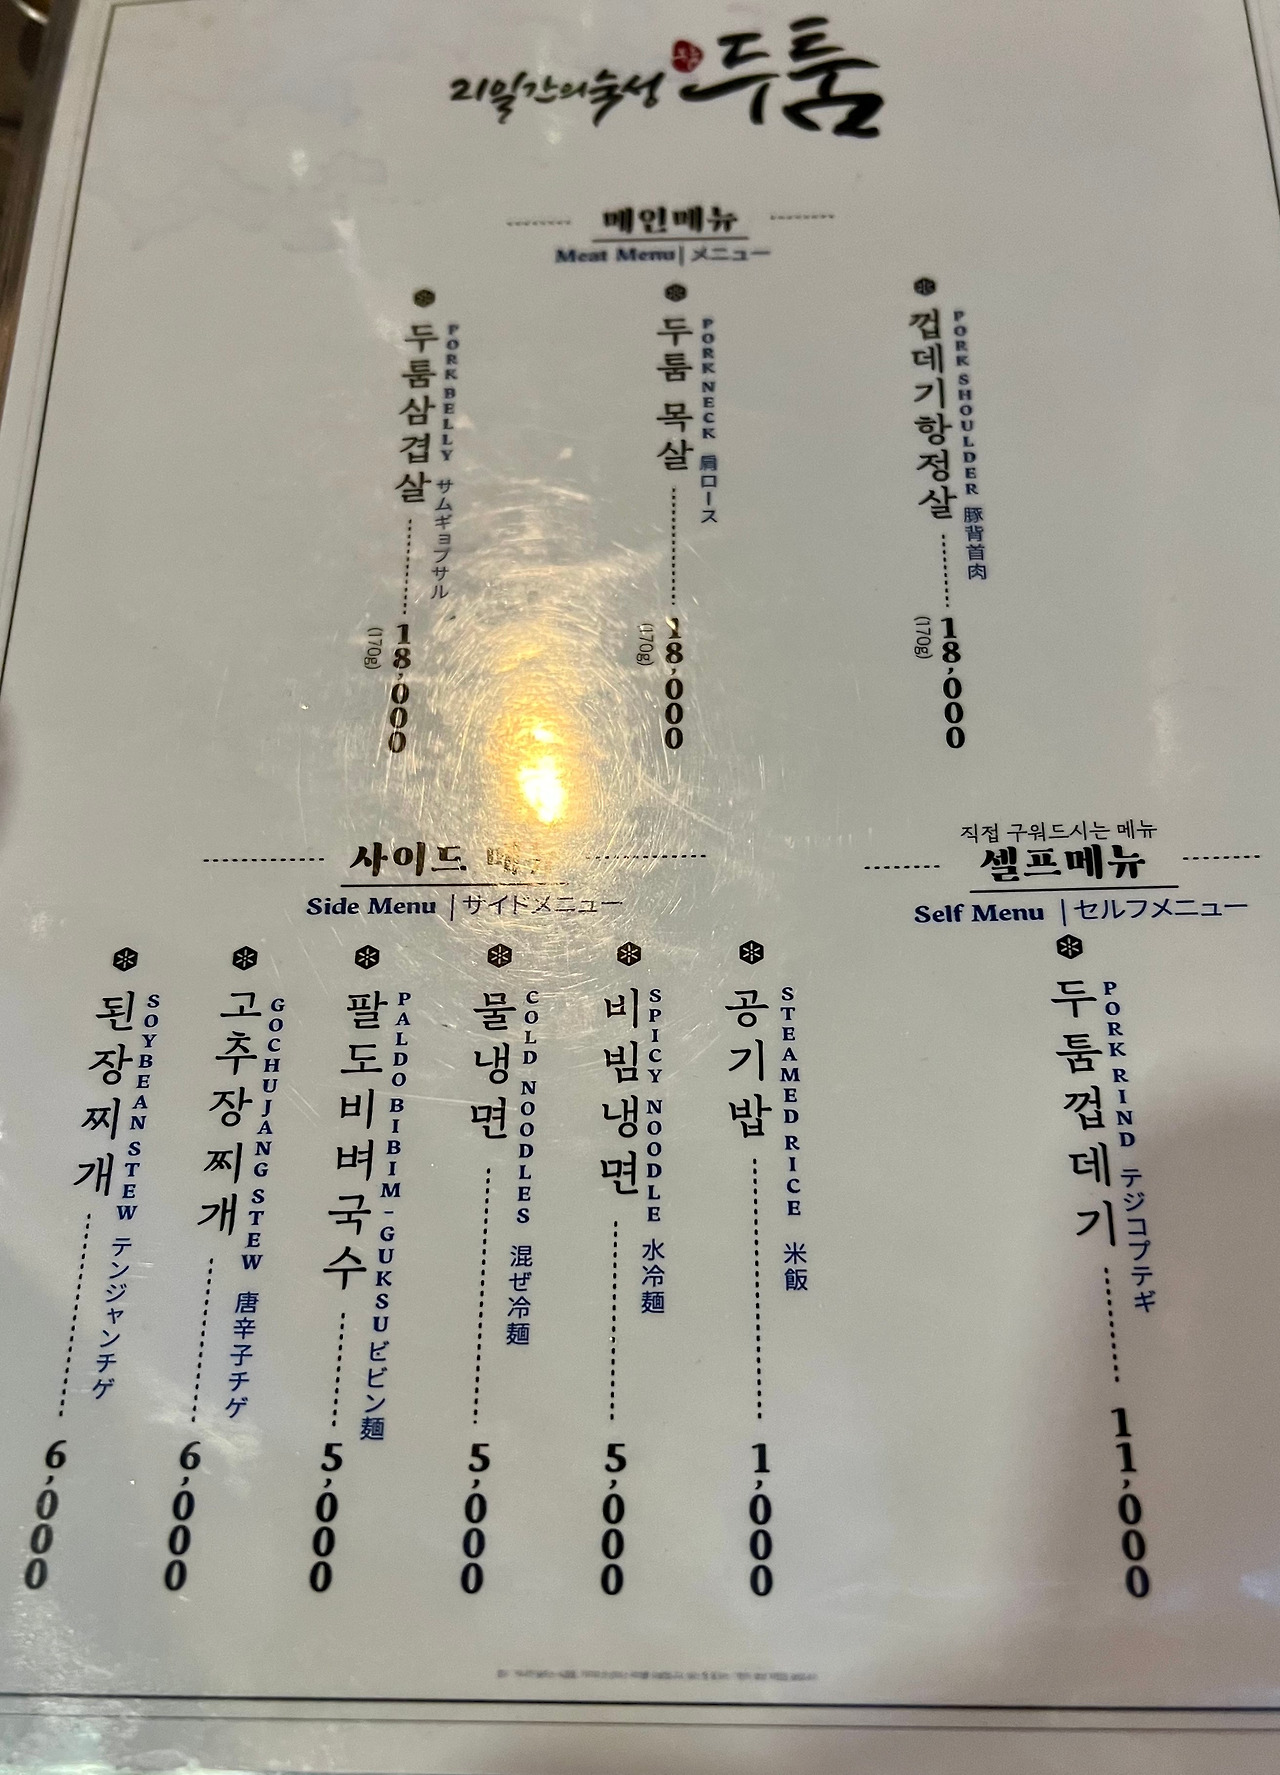 21일간의숙성 두툼
메인메뉴
Meat Menu | メニュー
두툼삼겹살 18,000
PORK BELLY サムギョプサル
(170g)
두툼 목살 18,000
PORK NECK 肩ロース
(170g)
껍데기항정살 18,000
PORK SHOULDER 豚背首肉
(170g)
사이드 메뉴
Side Menu | サイドメニュー
된장찌개 6,000
SOYBEAN STEW テンジャンチゲ
고추장찌개 6,000
GOCHUJANG STEW 唐辛子チゲ
팔도비벼국수 5,000
PALDO BIBIM-GUKSU ビビン麺
물냉면 5,000
COLD NOODLES 混ぜ冷麺
비빔냉면 5,000
SPICY NOODLE 水冷麺
공기밥 1,000
STEAMED RICE 米飯
직접 구워드시는 메뉴
셀프메뉴
Self Menu | セルフメニュー
두툼껍데기 11,000
PORK RIND テジコプテギ